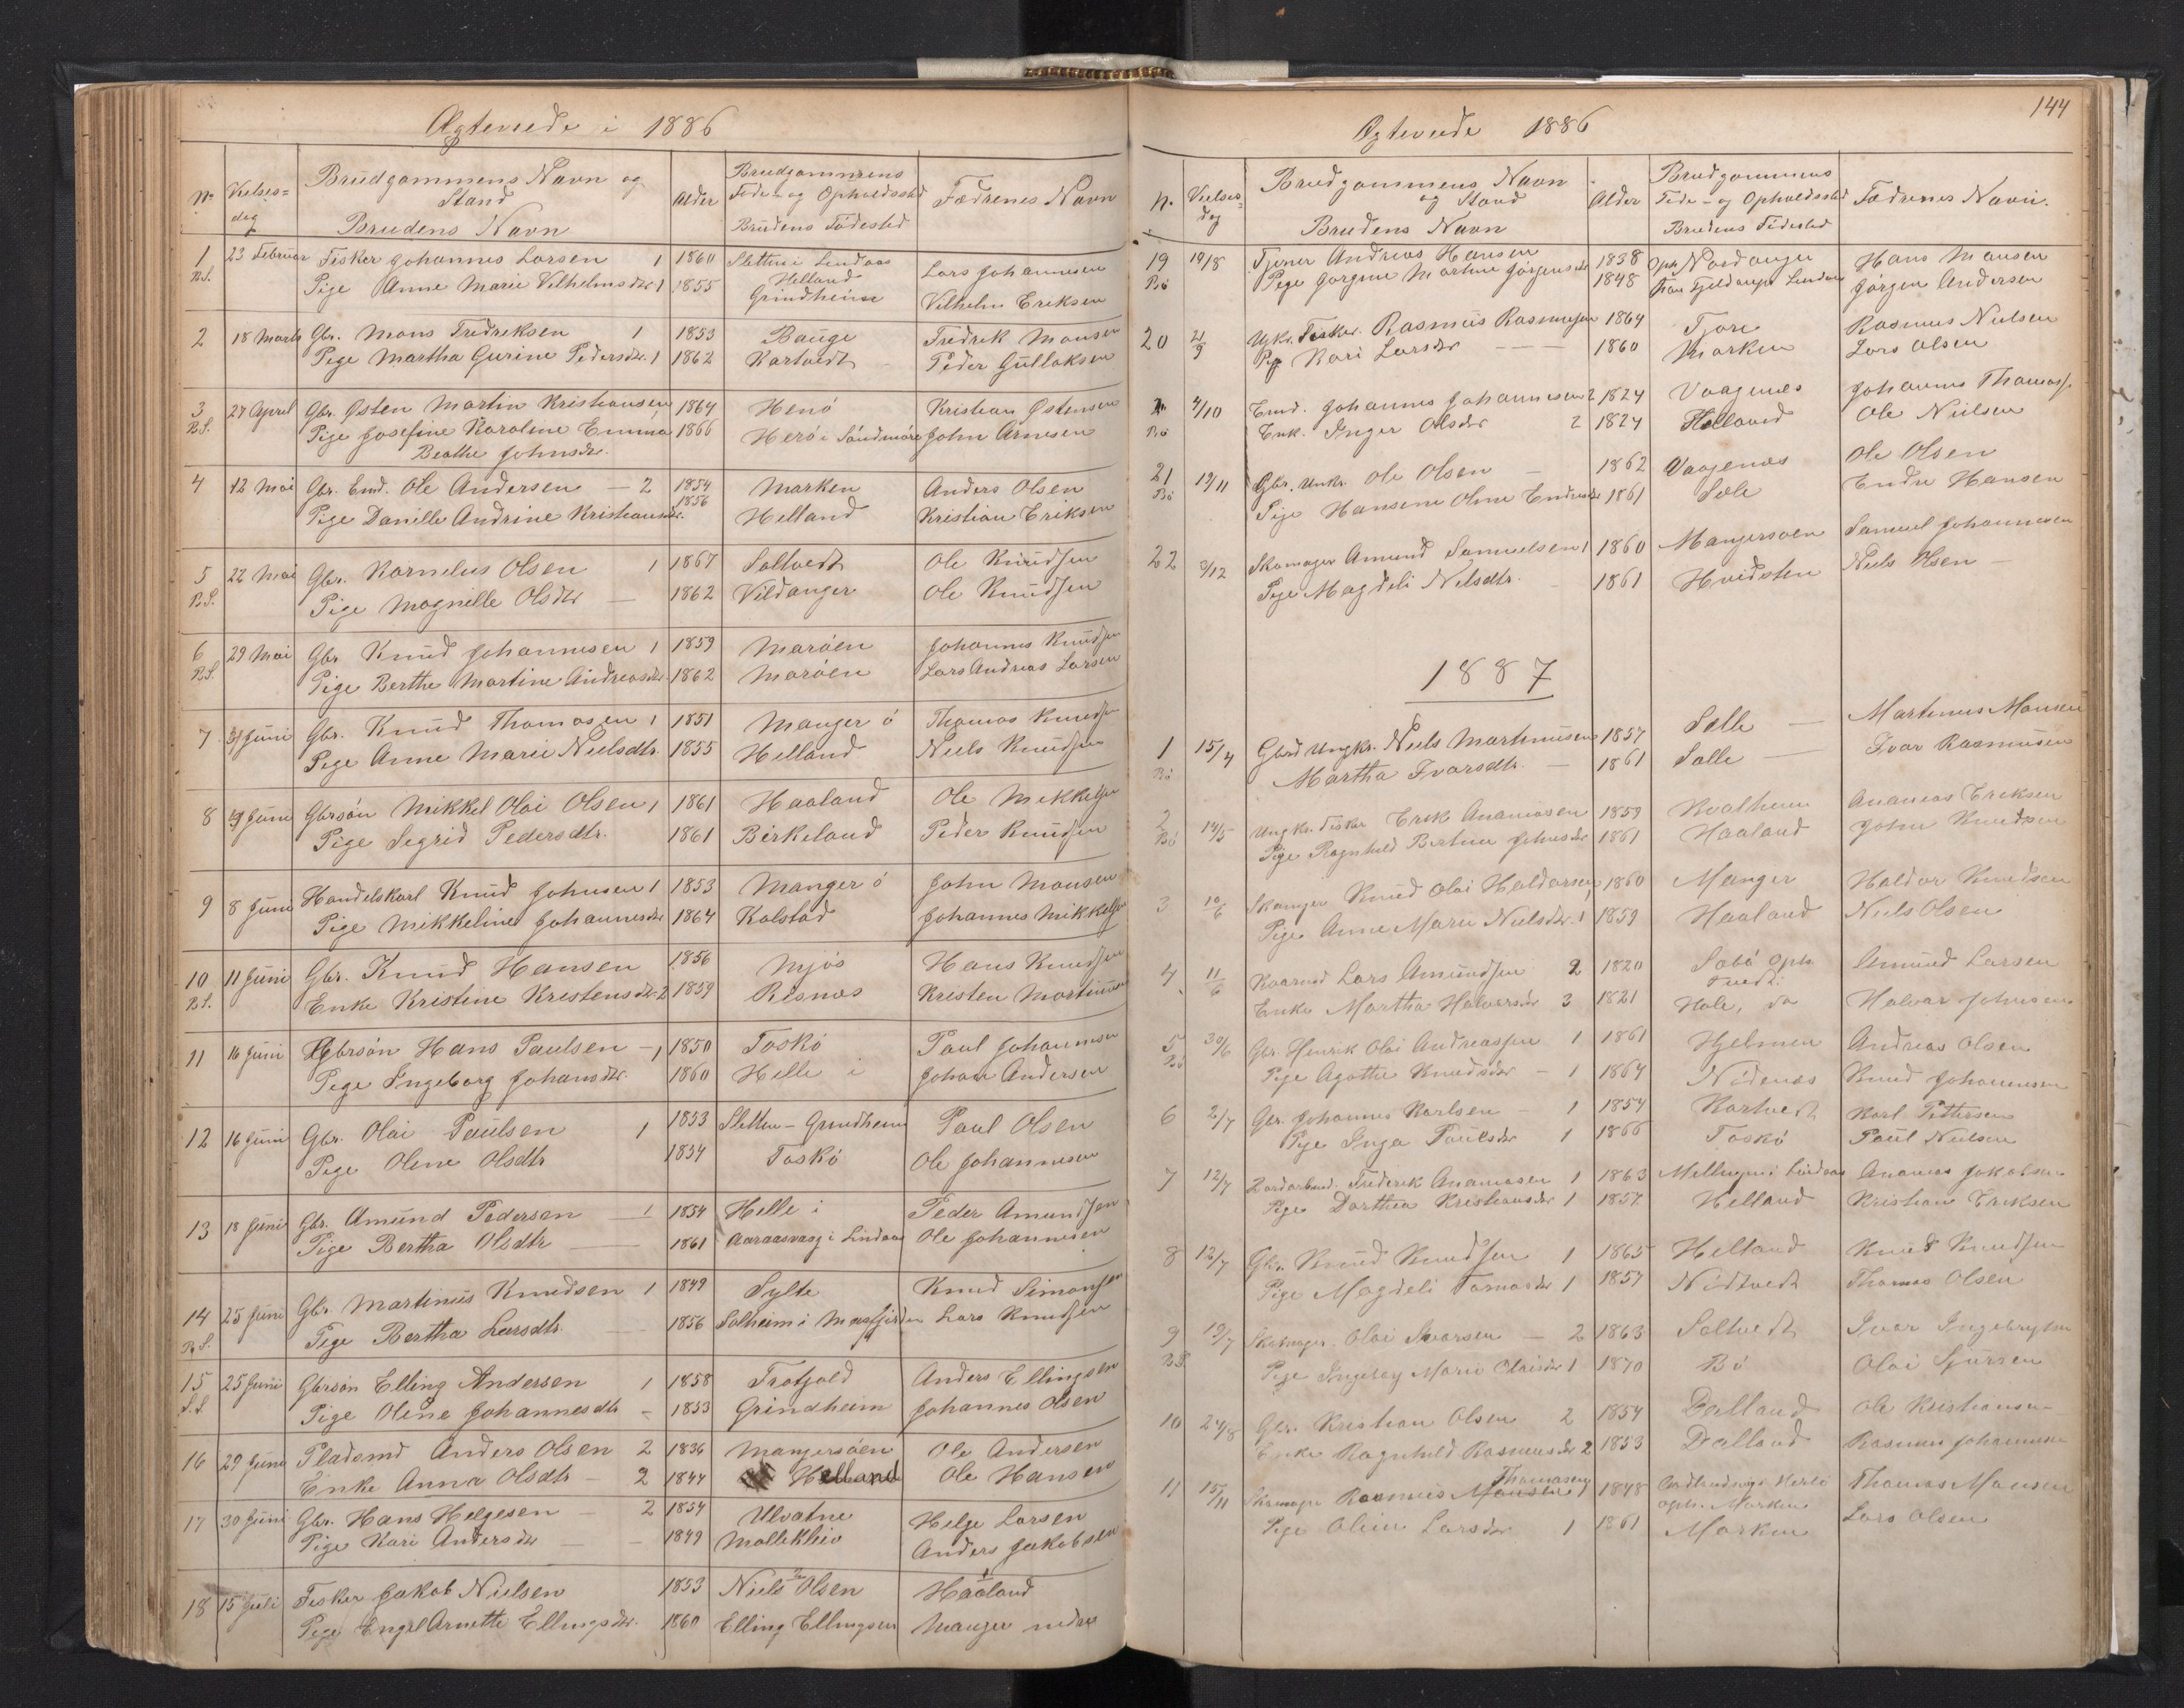 Ægteviede i 1886
No
Vielses=
dag
Brudgommens Navn og
Stand
Brudens Navn
Alder
Brudgommens
Føde- og Opholdssted
Brudens Fødested
Fædrenes Navn
1 23 Februar Fisker Johannes Larsen 1 1860 Sletten i Lindaas Lars Johannesen
B.S. Pige Anne Marie Vilhelmsdtr 1 1855 Helland
Grindheim Vilhelm Eriksen
2 18 Marts Gbr. Mons Fredriksen 1 1853 Bauge Fredrik Monsen
Pige Martha Gurine Pedersdtr. 1 1862 Kartvedt Peder Gullaksen
3 27 April Gbr. Østen Martin Kristiansen 1864 Henø Kristian Østensen
B.S. Pige Josefine Karoline Emma 1866 Herø i Søndmøre John Arnesen
Beathe Johnsdtr.
4 12 Mai Gbr. Emd. Ole Andersen — 2 1854 Marken Anders Olsen
Pige Danille Andrine Kristiansdtr. 1856 Helland Kristian Eriksen
5 22 Mai Gbr. Kornelius Olsen 1 1867 Soltvedt Ole Knudsen
B.S. Pige Magnille Olsdtr — 1862 Vildanger Ole Knudsen
6 29 Mai Gbr Knud Johannesen 1 1859 Marøen Johannes Knudsen
B.S. Pige Berthe Martine Andreasdtr. 1862 Marøen Lars Andreas Larsen
7 Juni Gbr. Knud Thomasen 1 1851 Manger ø Thomas Knudsen
Pige Anne Marie Nielsdtr. 1855 Helland Niels Knudsen
8 Juni Gbrsøn Mikkel Olai Olsen 1 1861 Haaland Ole Mikkelsen
Pige Sigrid Pedersdtr. 1861 Birkeland Peder Knudsen
9 8 Juni Handelskarl Knud Johnsen 1 1853 Manger ø John Monsen
Pige Mikkeline Johannesdtr 1864 Kolstad Johannes Mikkelsen
10 11 Juni Gbr. Knud Hansen 1856 Mjøs Hans Knudsen
B.S. Enke Kristine Kristensdtr. 2 1859 Risnæs Kristen Martinusen
11 16 Juni Gbrsøn Hans Paulsen — 1 1850 Toskø Paul Johannesen
Pige Ingeborg Johansdtr. 1860 Helle i Johan Andersen
12 16 Juni Gbr. Olai Paulsen 1 1853 Sletten - Grindheim Paul Olsen
Pige Oline Olsdtr 1854 Toskø Ole Johannesen
13 18 Juni Gbr. Amund Pedersen — 1 1854 Helle i Peder Amundsen
Pige Bertha Olsdtr — 1861 Aaraasvaag i Lindaas Ole Johannesen
14 25 Juni Gbr. Martinus Knudsen 1 1849 Sylte Knud Simonsen
B.S. Pige Bertha Larsdtr. — 1856 Solheim i Masfjorden Lars Knudsen
15 25 Juni Gbrsøn Elling Andersen 1 1858 Trofjeld Anders Ellingsen
S.S. Pige Oline Johannesdtr - 1853 Grindheim Johannes Olsen
16 29 Juni Pladsmd Anders Olsen 2 1836 Mangersøen Ole Andersen
Enke Anna Olsdtr — 2 1844 Helland Ole Hansen
17 30 Juni Gbr. Hans Helgesen — 2 1854 Ulvatne Helge Larsen
Pige Kari Andersdtr — 1849 Molleklev Anders Jakobsen
18 15 Juli Fisker Jakob Nielsen 1853 Niels Olsen Haaland
Pige Engel Arnette Ellingsdtr. 1860 Elling Ellingsen Manger nedre
144
Ægteviede 1886
N.
Vielses=
dag
Brudgommens Navn
og Stand
Brudens Navn
Alder
Brudgommens
Føde- og Opholdssted
Brudens Fødested
Fædrenes Navn.
19 19/8 Tjener Andreas Hansen 1838 Oph. Nordanger Hans Monsen
Bø Pige Jørgine Martine Jørgensdtr 1848 Lindaas Jørgen Andersen
20 2/9 Ugk. Fisker. Rasmus Rasmusen 1864 Fjore Rasmus Nielsen
Pig Kari Larsdtr — 1860 Marken Lars Olsen
4/10 Emd. Johannes Johannesen 2 1824 Vaagenes Johannes Thomas.
Bø Enk. Inger Olsdtr 2 1824 Helland Ole Nielsen
21 19/11 Gbr. Unkr. Ole Olsen — 1862 Vaagenes Ole Olsen
Bø Pige Hansine Oline Endresdtr 1861 Sæle Endre Hansen
22 3/12 Skomager Amund Samuelsen 1 1860 Mangersøen Samuel Johannesen
Pige Magdeli Nilsdtr. — 1861 Hvidsten Niels Olsen —
1887
1 15/4 Gbrd Ungkr. Niels Martinusen 1857 Sælle — Martinus Monsen
Bø Martha Ivarsdtr. — 1861 Sælle — Ivar Rasmusen
2 14/5 Ungk. Fisker Erik Ananiasen 1859 Kvalheim Ananias Eriksen
Bø Pige Ragnhild Bertine Johnsdtr 1861 Haaland John Knudsen
3 10/6 Skomager Knud Olai Haldorsen 1860 Manger Haldor Knudsen
Pige Anne Marie Nielsdtr. 1 1859 Haaland Niels Olsen
4 11/6 Kaarmd Lars Amundsen 2 1820 Sæbø oph. Amund Larsen
Tvedt.
Enke Martha Halvorsdr 3 1821 Hole, do Halvor Johnsen
5 30/6 Gbr. Henrik Olai Andreassen 1 1861 Hjelmen Andreas Olsen
Bø Pige Agathe Knudsdtr — 1 1864 Nødenæs Knud Johannesen
6 2/7 Gbr. Johannes Karlsen — 1 1854 Kartvedt Karl Pettersen
Pige Inga Paulsdtr 1 1866 Toskø Paul Nielsen
7 12/7 Fredrik Ananiasen 1 1863 Mellingen i Lindaas Ananias Jakobsen
Pige Dorthea Kristiansdtr 1 1857 Helland Kristian Eriksen
8 12/7 Gbr. Knud Knudsen 1 1865 Helland Knud Knudsen
Pige Magdeli Tomasdtr 1 1857 Nødtvedt Thomas Olsen
9 19/7 Skomager. Olai Ivarsen — 2 1863 Soltvedt Ivar Ingebrigtsen
B.S. Pige Ingeborg Marie Olaisdtr 1 1870 Bø Olai Sjursen
10 24/8 Gbr. Kristian Olsen 2 1854 Dalland Ole Kristiansen
Enke Ragnhild Rasmusdtr 2 1853 Dalland Rasmus Johannesen
Thomasen
11 15/11 Skomager Rasmus Monsen 1 1848 Herlø Thomas Monsen
oph. Marken
Pige Oline Larsdtr 1 1861 Marken Lars Olsen